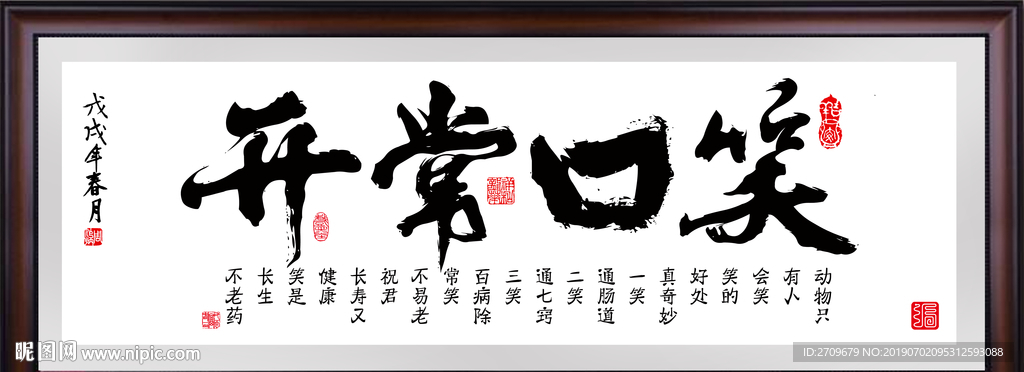 笑口常开
动物只
有人
会笑
笑的
好处
真奇妙
一笑
通肠道
二笑
通七窍
三笑
百病除
常笑
不易老
祝君
长寿又
健康
笑是
长生
不老药
戊戌年春月
昵图网 www.nipic.com
ID:2709679 NO:20190702095312593088